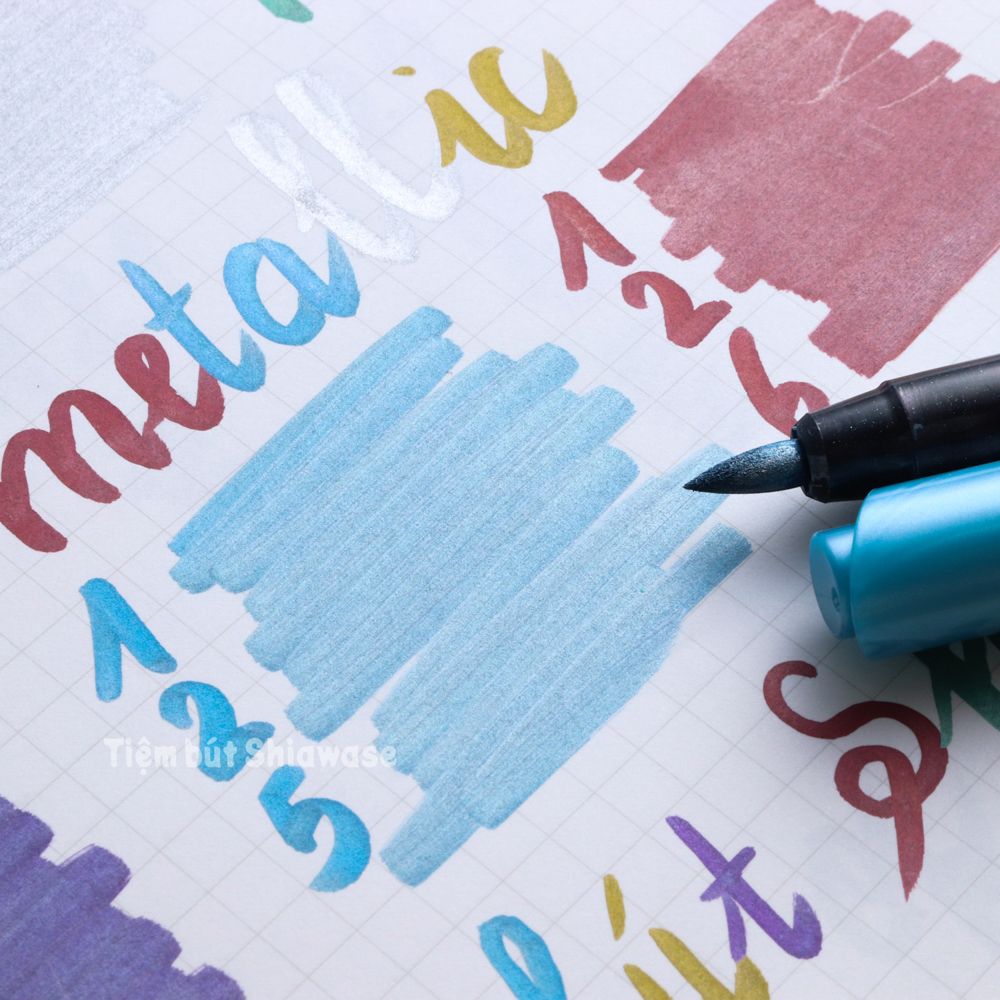 metallic
126
125
Tiệm bút Shiawase